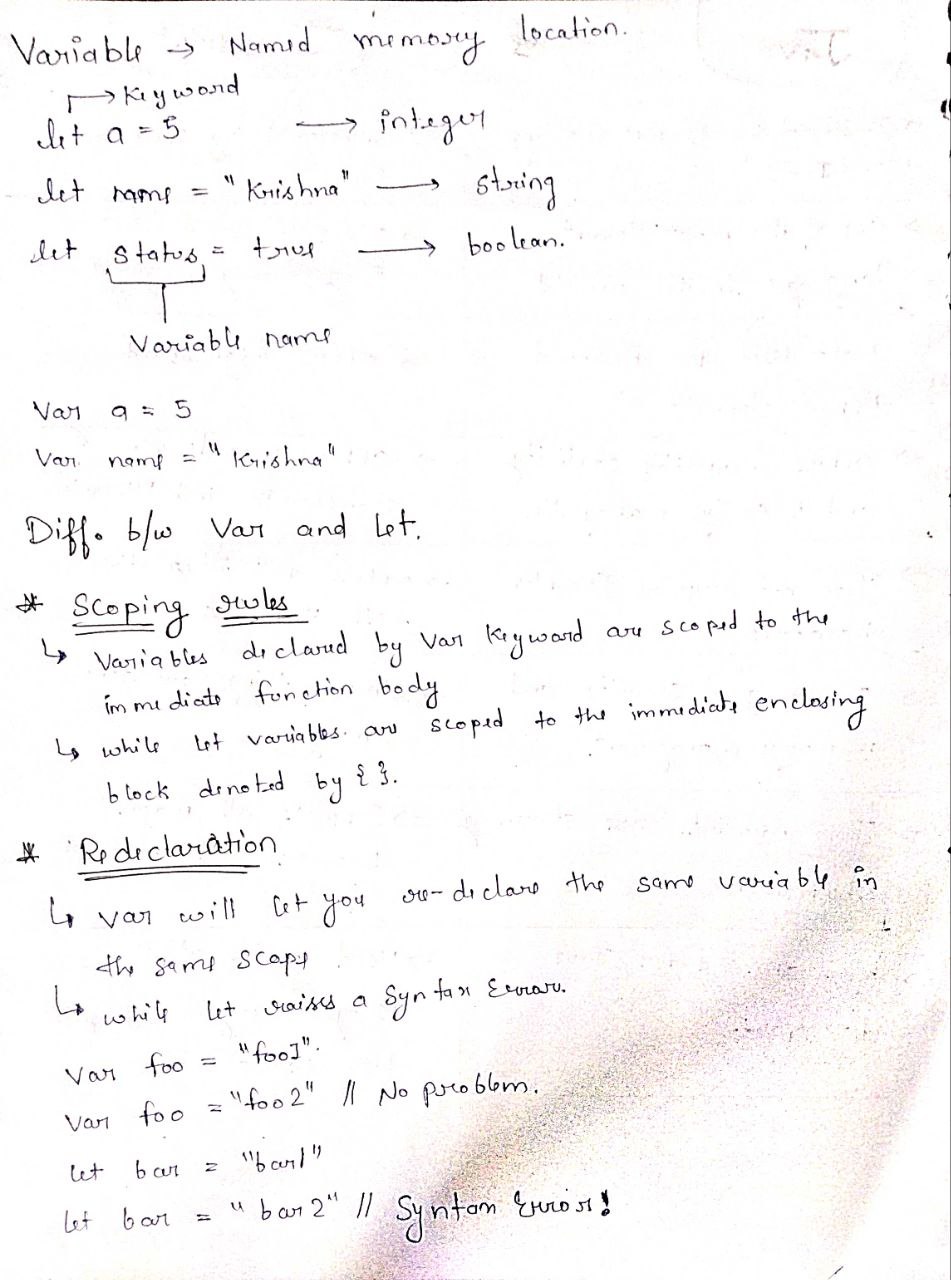 Variable → Named memory location.
→ Keyword
let a = 5 → integer
let name = "Krishna" → string
let status = true → boolean.
Variable name
Var a = 5
Var name = "Krishna"
Diff. b/w Var and let.
* Scoping rules
↳ Variables declared by Var Keyword are scoped to the
immediate function body
↳ while let variables are scoped to the immediate enclosing
block denoted by { }.
* Redeclaration
↳ Var will let you re-declare the same variable in
the same scope
↳ while let raises a Syntax Error.
Var foo = "foo1".
Var foo = "foo2" // No problem.
let bar = "bar1"
let bar = "bar2" // Syntax Error!